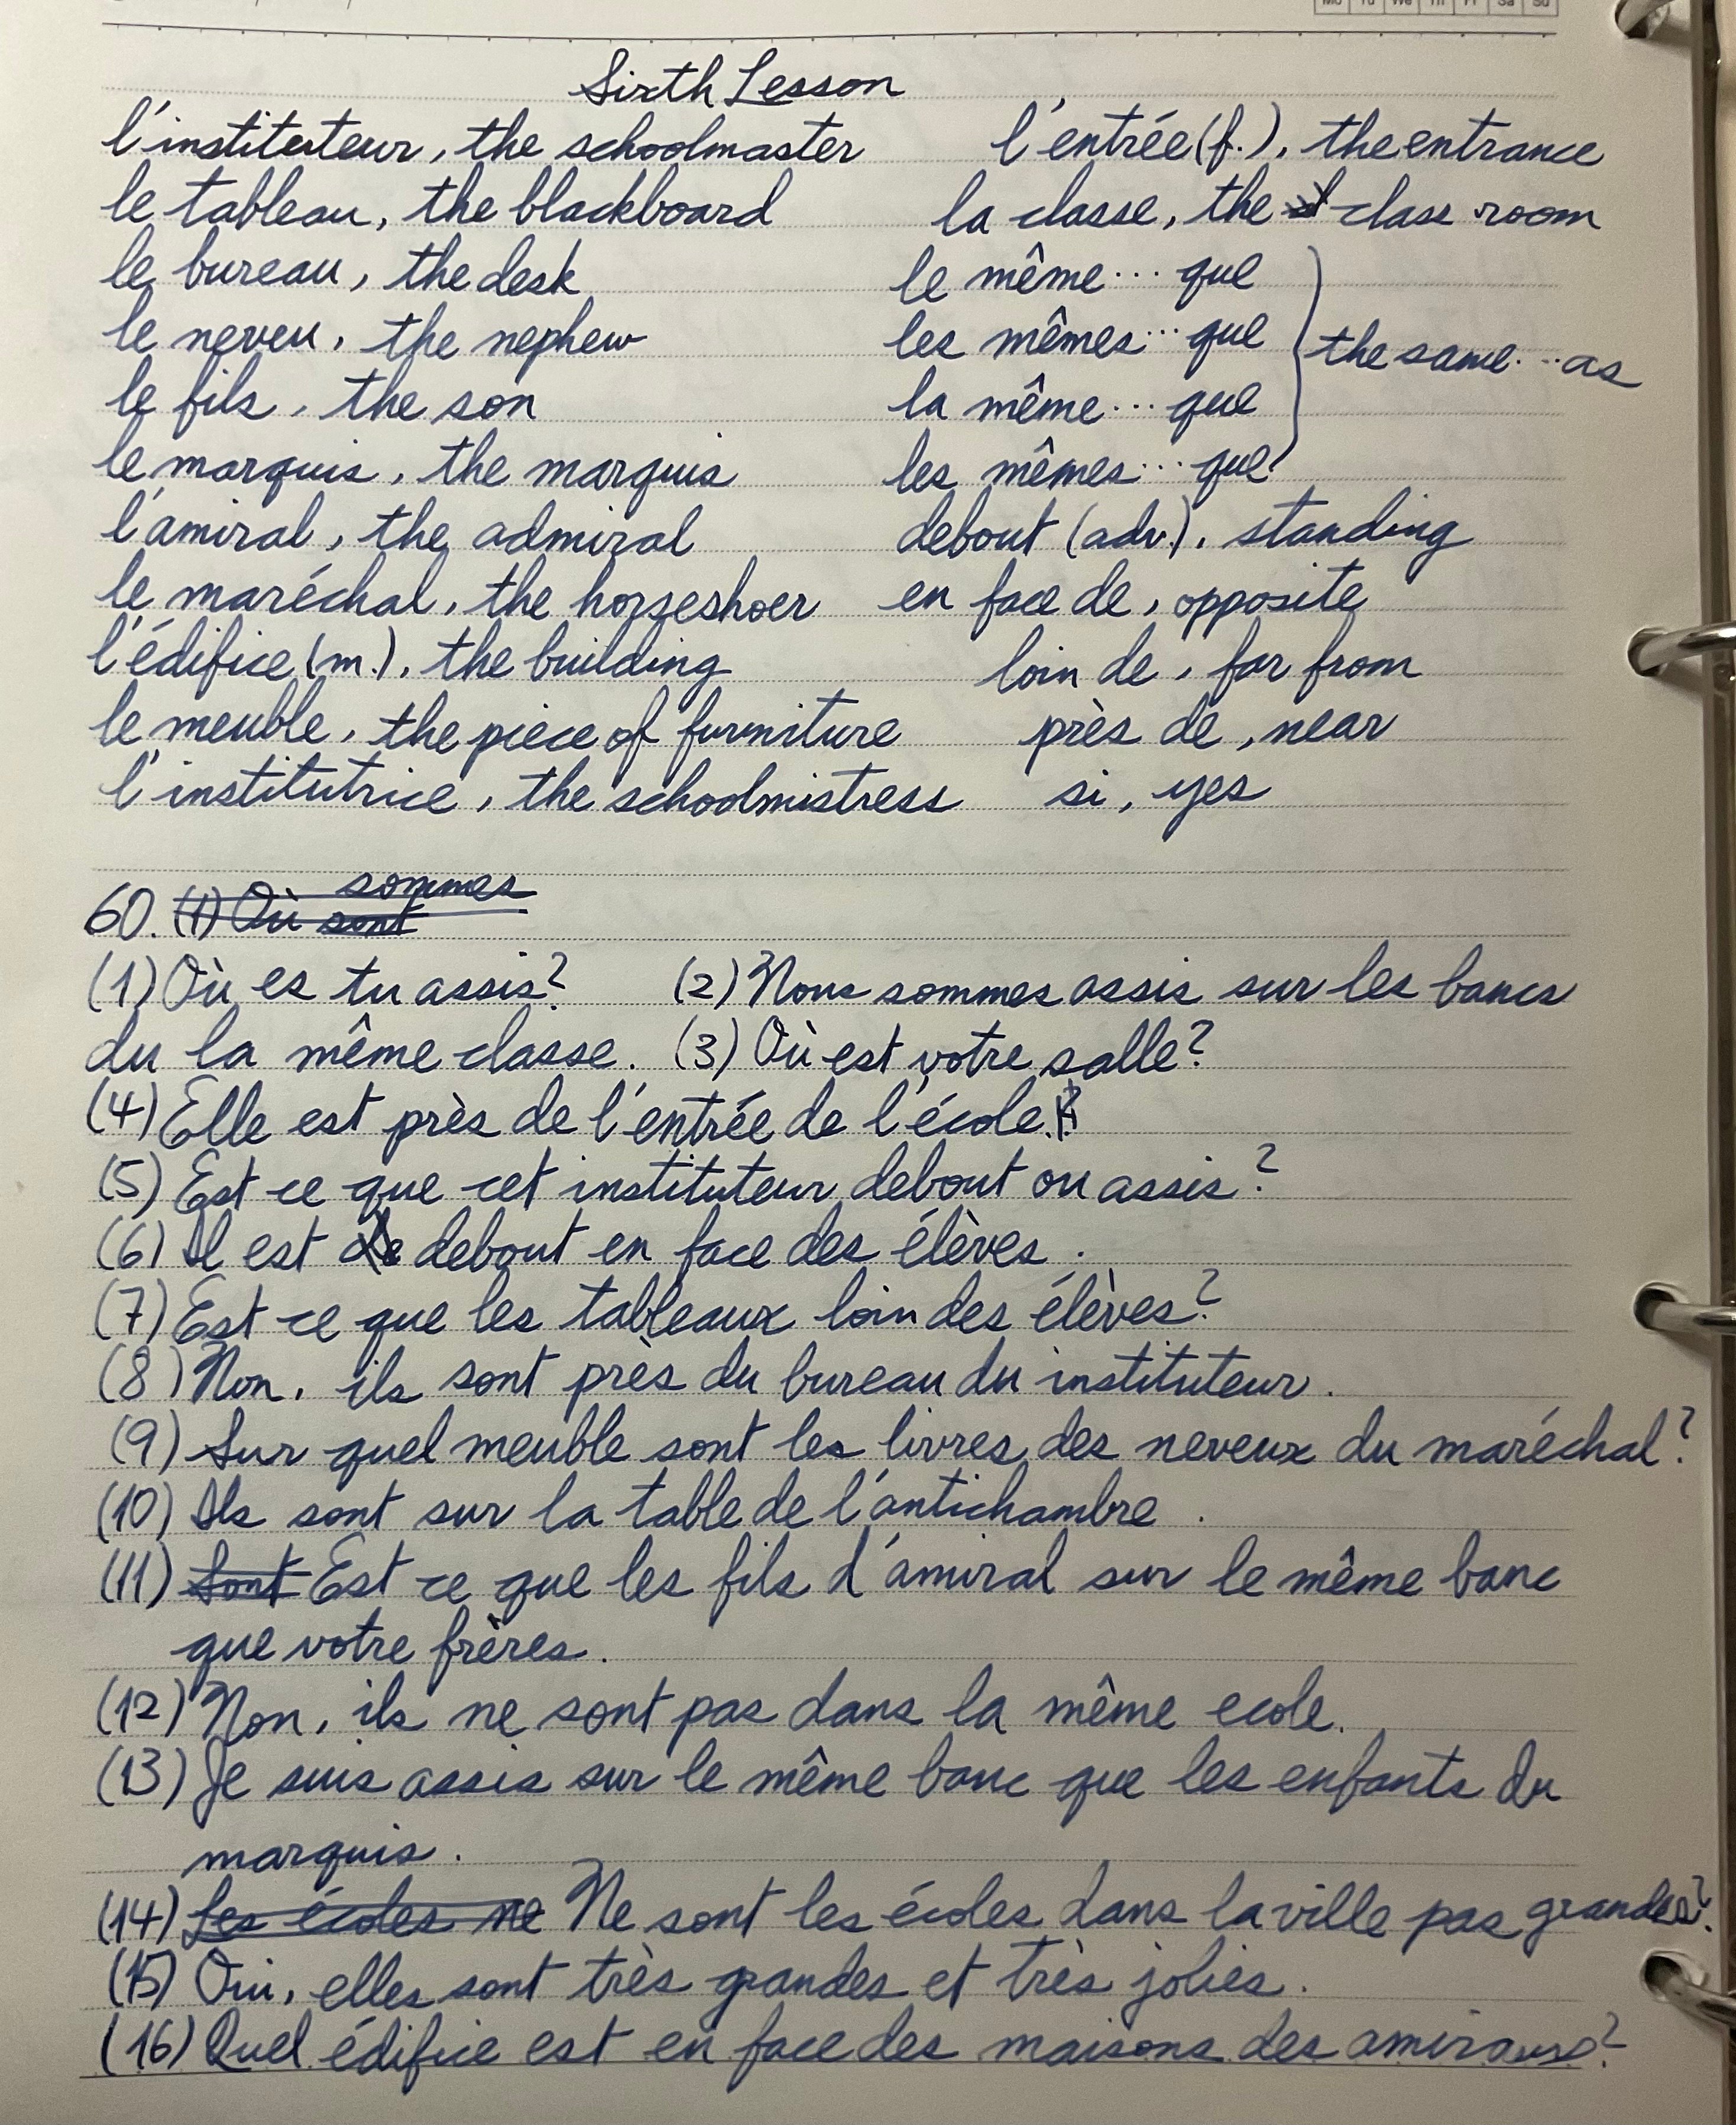 Mo Tu We Th Fr Sa Su
Sixth Lesson
l'instituteur, the schoolmaster l'entrée (f.), the entrance
le tableau, the blackboard la classe, the class room
le bureau, the desk le même... que
le neveu, the nephew les mêmes... que the same... as
le fils, the son la même... que
le marquis, the marquis les mêmes... que
l'amiral, the admiral debout (adv.), standing
le maréchal, the horseshoer en face de, opposite
l'édifice (m.), the building loin de, far from
le meuble, the piece of furniture près de, near
l'institutrice, the schoolmistress si, yes
sommes
60. (1) Où sont
(1) Où es tu assis? (2) Nous sommes assis sur les bancs
du la même classe. (3) Où est votre salle?
(4) Elle est près de l'entrée de l'école.
(5) Est ce que cet instituteur debout ou assis?
(6) Il est debout en face des élèves.
(7) Est ce que les tableaux loin des élèves?
(8) Non, ils sont près du bureau du instituteur.
(9) Sur quel meuble sont les livres des neveux du maréchal?
(10) Ils sont sur la table de l'antichambre.
(11) Sont Est ce que les fils d'amiral sur le même banc
que votre frères.
(12) Non, ils ne sont pas dans la même ecole.
(13) Je suis assis sur le même banc que les enfants du
marquis.
(14) Les écoles ne Ne sont les écoles dans la ville pas grandes?
(15) Oui, elles sont très grandes et très jolies.
(16) Quel édifice est en face des maisons des amiraux?